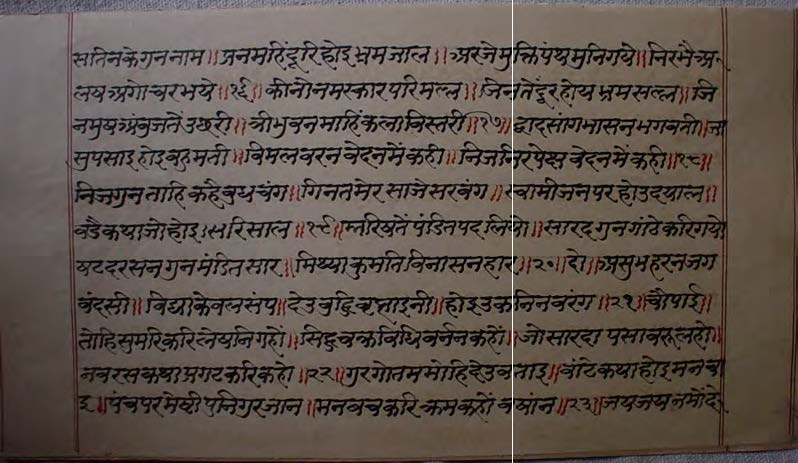 सातिनकेगुननाम॥ मनमहिंदूरिहोइभ्रमजाल॥ अरजेमुक्तिपंथमुनिगये॥ निरभैअ
लयअगोचरभये॥१६॥ कीनौनमस्कारपरिमल्ल॥ जिनतेंदूरहोयभ्रमसल्ल॥ जि
नमुषअंबुजतेंउछरी॥ त्रीभुवनमाहिंकलाविस्तरी॥१७॥ द्वादसांगभासनभगवती॥ जा
सुपसाइहोइबहुमती॥ विमलवरनवेदनमेंकही॥ निजनिरपेक्षवेदनमेंकही॥१८॥
निजगुनताहिकहैबुधचंग॥ गिनतमेरसाजेसरवंग॥ स्वामीजनपरहोउदयाल॥
वडैकथाजोहोइ।सरिसाल॥१९॥ पंडितपदलियो॥ सारदगुनगांठेकरिगयो
षटदरसनगुनमंडितसार॥ मिथ्याकुमतिविनासनहार॥२०॥दो॥ असुभहरनजग
वंदसी॥ विद्याकेवलसंप॥ देउबुद्धि होइउकतिनवरंग॥२१॥चौपाई॥
तोहिसुमरिकरि सिद्धचक्रविधिवर्ननकहों॥ जोसारदा
नवरसकथाप्रगटकरिकहो॥२२॥ गुरगोतममोहिदेउबताइ॥ वांटेकथाहोइमनचा
इ॥ पंचपरमेष्टीपनिगुरजान॥ मनवचकरिक्रमकहोंवषांन॥२३॥ जयजयनमों